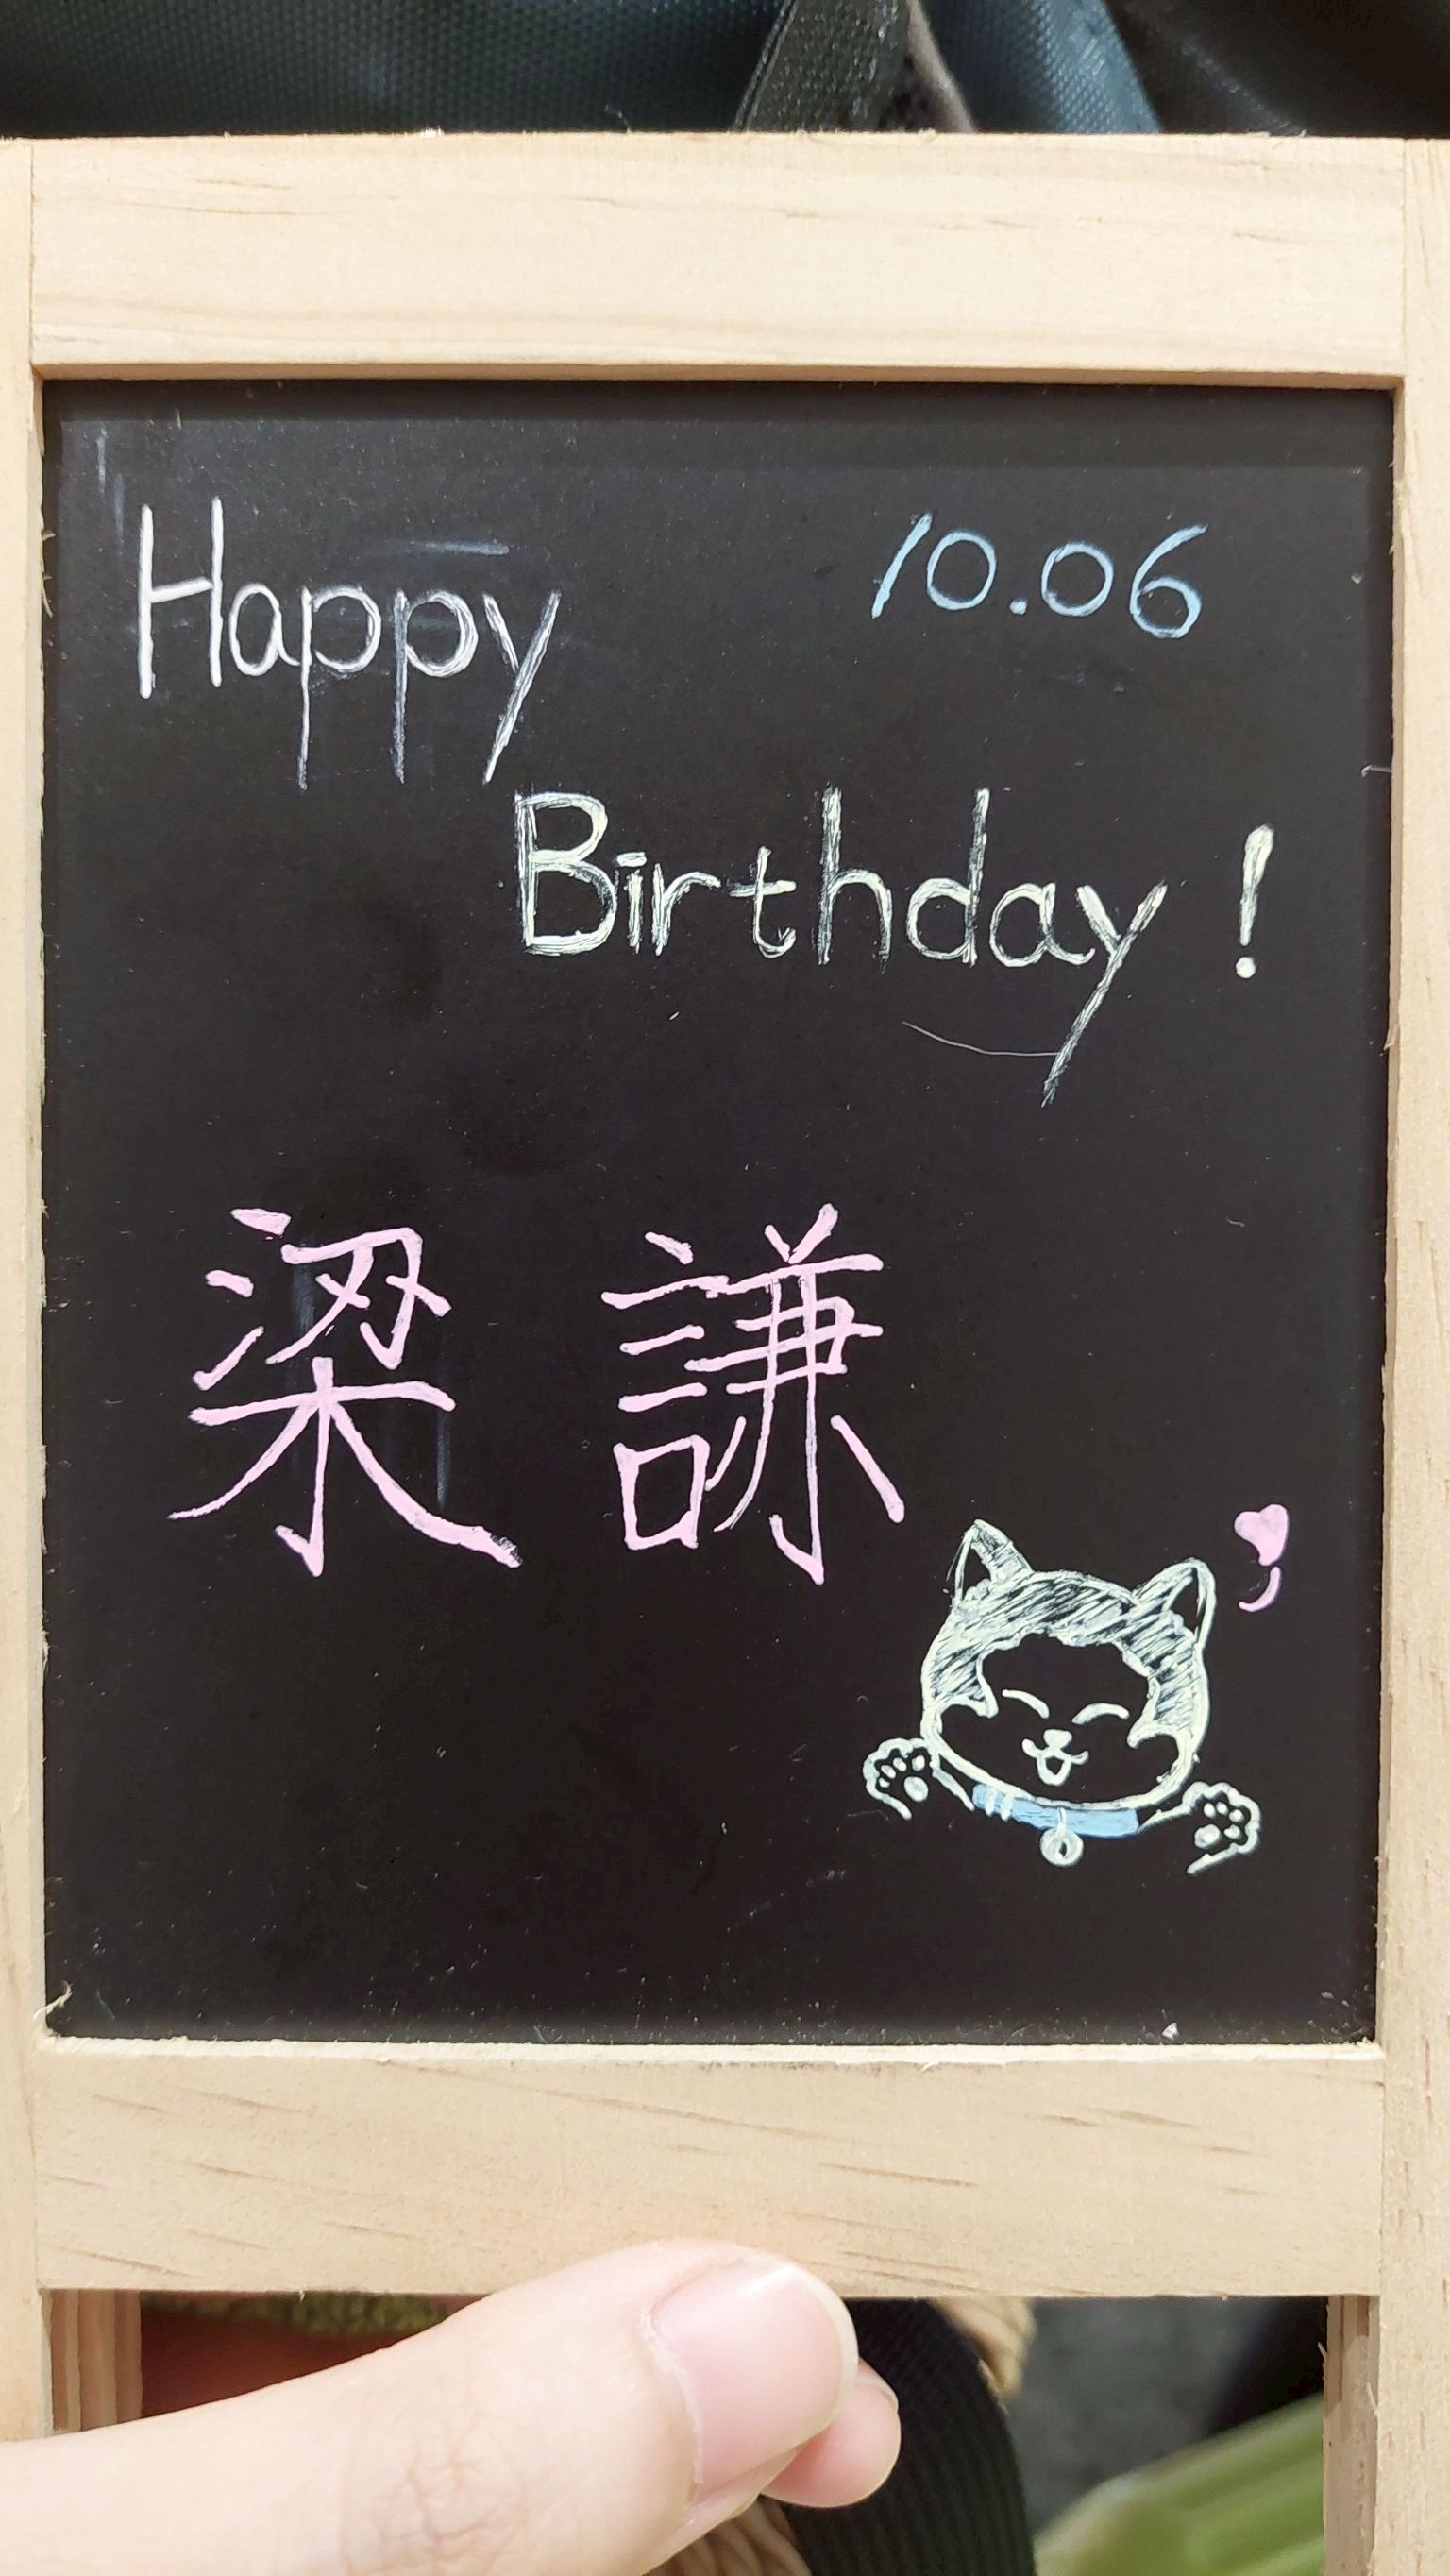 Happy 10.06
Birthday!
梁謙